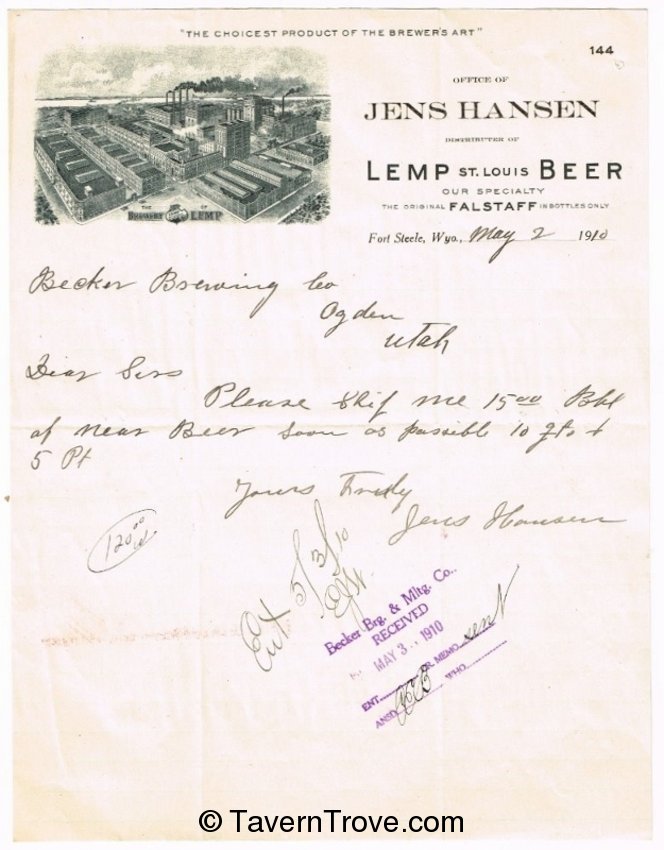 "THE CHOICEST PRODUCT OF THE BREWER'S ART"
144
OFFICE OF
JENS HANSEN
DISTRIBUTER OF
LEMP ST. LOUIS BEER
OUR SPECIALTY
THE ORIGINAL FALSTAFF IN BOTTLES ONLY
THE BREWERY OF LEMP
Fort Steele, Wyo., May 2 1910
Becker Brewing Co
Ogden
Utah
Dear Sirs
Please Ship me 15 00 Bbl
of Near Beer soon as possible 10 qts &
5 Pt
Yours Truly
Jens Hansen
120 00
Ent 5/3/10
Becker Brg. & Mltg. Co..
RECEIVED
MAY 3.. 1910
ENT. OR MEMO sent
ANSD WHO
© TavernTrove.com